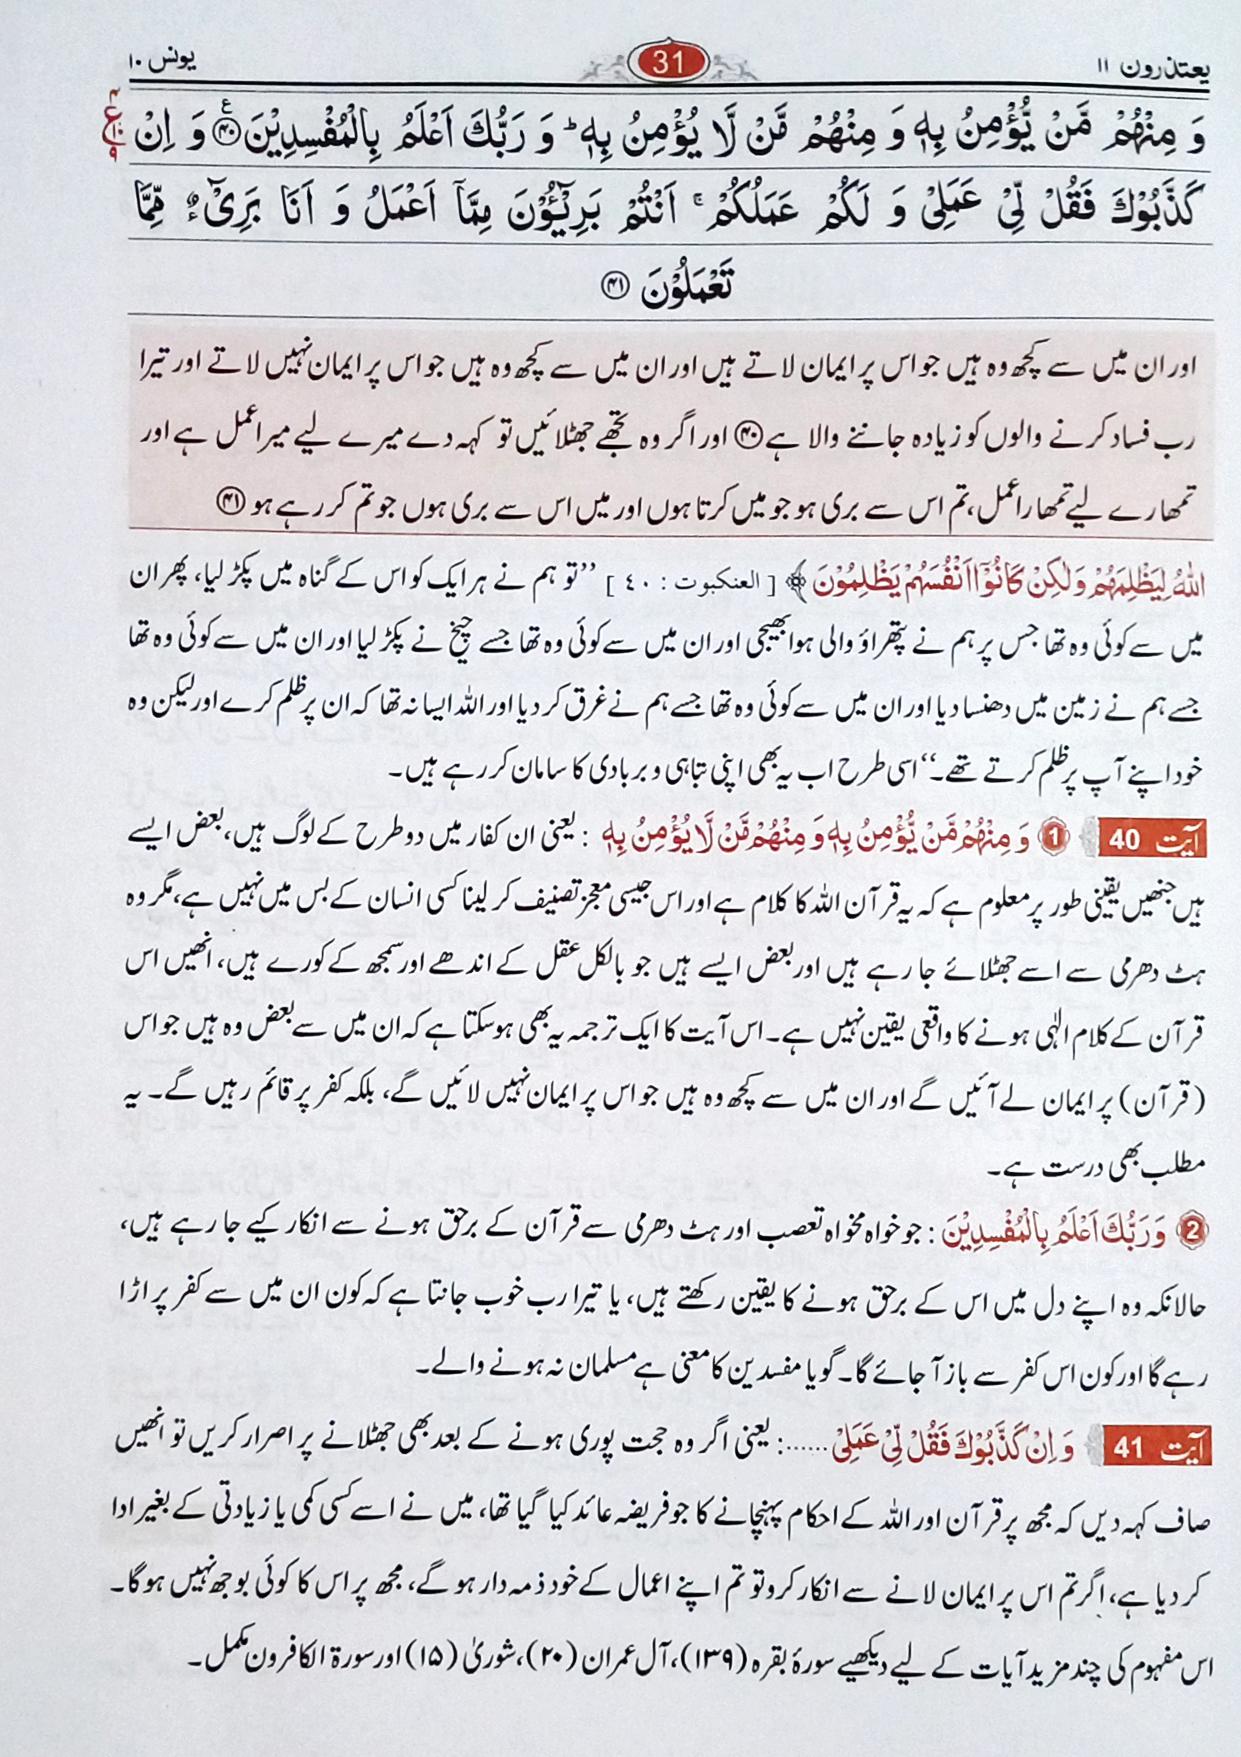 یعتذرون ۱۱
31
یونس ۱۰
وَ مِنْهُمْ مَّنْ یُّؤْمِنُ بِهٖ وَ مِنْهُمْ مَّنْ لَّا یُؤْمِنُ بِهٖ ؕ وَ رَبُّكَ اَعْلَمُ بِالْمُفْسِدِیْنَ ۝۴۰ وَ اِنْ
كَذَّبُوْكَ فَقُلْ لِّیْ عَمَلِیْ وَ لَكُمْ عَمَلُكُمْ ۚ اَنْتُمْ بَرِیْٓـُٔوْنَ مِمَّاۤ اَعْمَلُ وَ اَنَا بَرِیْٓءٌ مِّمَّا
تَعْمَلُوْنَ ۝۴۱
اور ان میں سے کچھ وہ ہیں جو اس پر ایمان لاتے ہیں اور ان میں سے کچھ وہ ہیں جو اس پر ایمان نہیں لاتے اور تیرا
رب فساد کرنے والوں کو زیادہ جاننے والا ہے ۝۴۰ اور اگر وہ تجھے جھٹلائیں تو کہہ دے میرے لیے میرا عمل ہے اور
تمھارے لیے تمھارا عمل، تم اس سے بری ہو جو میں کرتا ہوں اور میں اس سے بری ہوں جو تم کر رہے ہو ۝۴۱
اللّٰهُ لِیَظْلِمَهُمْ وَ لٰكِنْ كَانُوْۤا اَنْفُسَهُمْ یَظْلِمُوْنَ ﴾ [ العنكبوت : ٤٠ ] ’’تو ہم نے ہر ایک کو اس کے گناہ میں پکڑ لیا، پھر ان
میں سے کوئی وہ تھا جس پر ہم نے پتھراؤ والی ہوا بھیجی اور ان میں سے کوئی وہ تھا جسے چیخ نے پکڑ لیا اور ان میں سے کوئی وہ تھا
جسے ہم نے زمین میں دھنسا دیا اور ان میں سے کوئی وہ تھا جسے ہم نے غرق کر دیا اور اللہ ایسا نہ تھا کہ ان پر ظلم کرے اور لیکن وہ
خود اپنے آپ پر ظلم کرتے تھے۔‘‘ اسی طرح اب یہ بھی اپنی تباہی و بربادی کا سامان کر رہے ہیں۔
آیت 40 1 وَ مِنْهُمْ مَّنْ یُّؤْمِنُ بِهٖ وَ مِنْهُمْ مَّنْ لَّا یُؤْمِنُ بِهٖ : یعنی ان کفار میں دو طرح کے لوگ ہیں، بعض ایسے
ہیں جنھیں یقینی طور پر معلوم ہے کہ یہ قرآن اللہ کا کلام ہے اور اس جیسی معجز تصنیف کر لینا کسی انسان کے بس میں نہیں ہے، مگر وہ
ہٹ دھرمی سے اسے جھٹلائے جا رہے ہیں اور بعض ایسے ہیں جو بالکل عقل کے اندھے اور سمجھ کے کورے ہیں، انھیں اس
قرآن کے کلام الٰہی ہونے کا واقعی یقین نہیں ہے۔ اس آیت کا ایک ترجمہ یہ بھی ہوسکتا ہے کہ ان میں سے بعض وہ ہیں جو اس
(قرآن) پر ایمان لے آئیں گے اور ان میں سے کچھ وہ ہیں جو اس پر ایمان نہیں لائیں گے، بلکہ کفر پر قائم رہیں گے۔ یہ
مطلب بھی درست ہے۔
2 وَ رَبُّكَ اَعْلَمُ بِالْمُفْسِدِیْنَ : جو خواہ مخواہ تعصب اور ہٹ دھرمی سے قرآن کے برحق ہونے سے انکار کیے جا رہے ہیں،
حالانکہ وہ اپنے دل میں اس کے برحق ہونے کا یقین رکھتے ہیں، یا تیرا رب خوب جانتا ہے کہ کون ان میں سے کفر پر اڑا
رہے گا اور کون اس کفر سے باز آ جائے گا۔ گویا مفسدین کا معنی ہے مسلمان نہ ہونے والے۔
آیت 41 وَ اِنْ كَذَّبُوْكَ فَقُلْ لِّیْ عَمَلِیْ ......: یعنی اگر وہ حجت پوری ہونے کے بعد بھی جھٹلانے پر اصرار کریں تو انھیں
صاف کہہ دیں کہ مجھ پر قرآن اور اللہ کے احکام پہنچانے کا جو فریضہ عائد کیا گیا تھا، میں نے اسے کسی کمی یا زیادتی کے بغیر ادا
کر دیا ہے، اگر تم اس پر ایمان لانے سے انکار کرو تو تم اپنے اعمال کے خود ذمہ دار ہو گے، مجھ پر اس کا کوئی بوجھ نہیں ہوگا۔
اس مفہوم کی چند مزید آیات کے لیے دیکھیے سورۂ بقرہ (۱۳۹)، آل عمران (۲۰)، شوریٰ (۱۵) اور سورۃ الکافرون مکمل۔